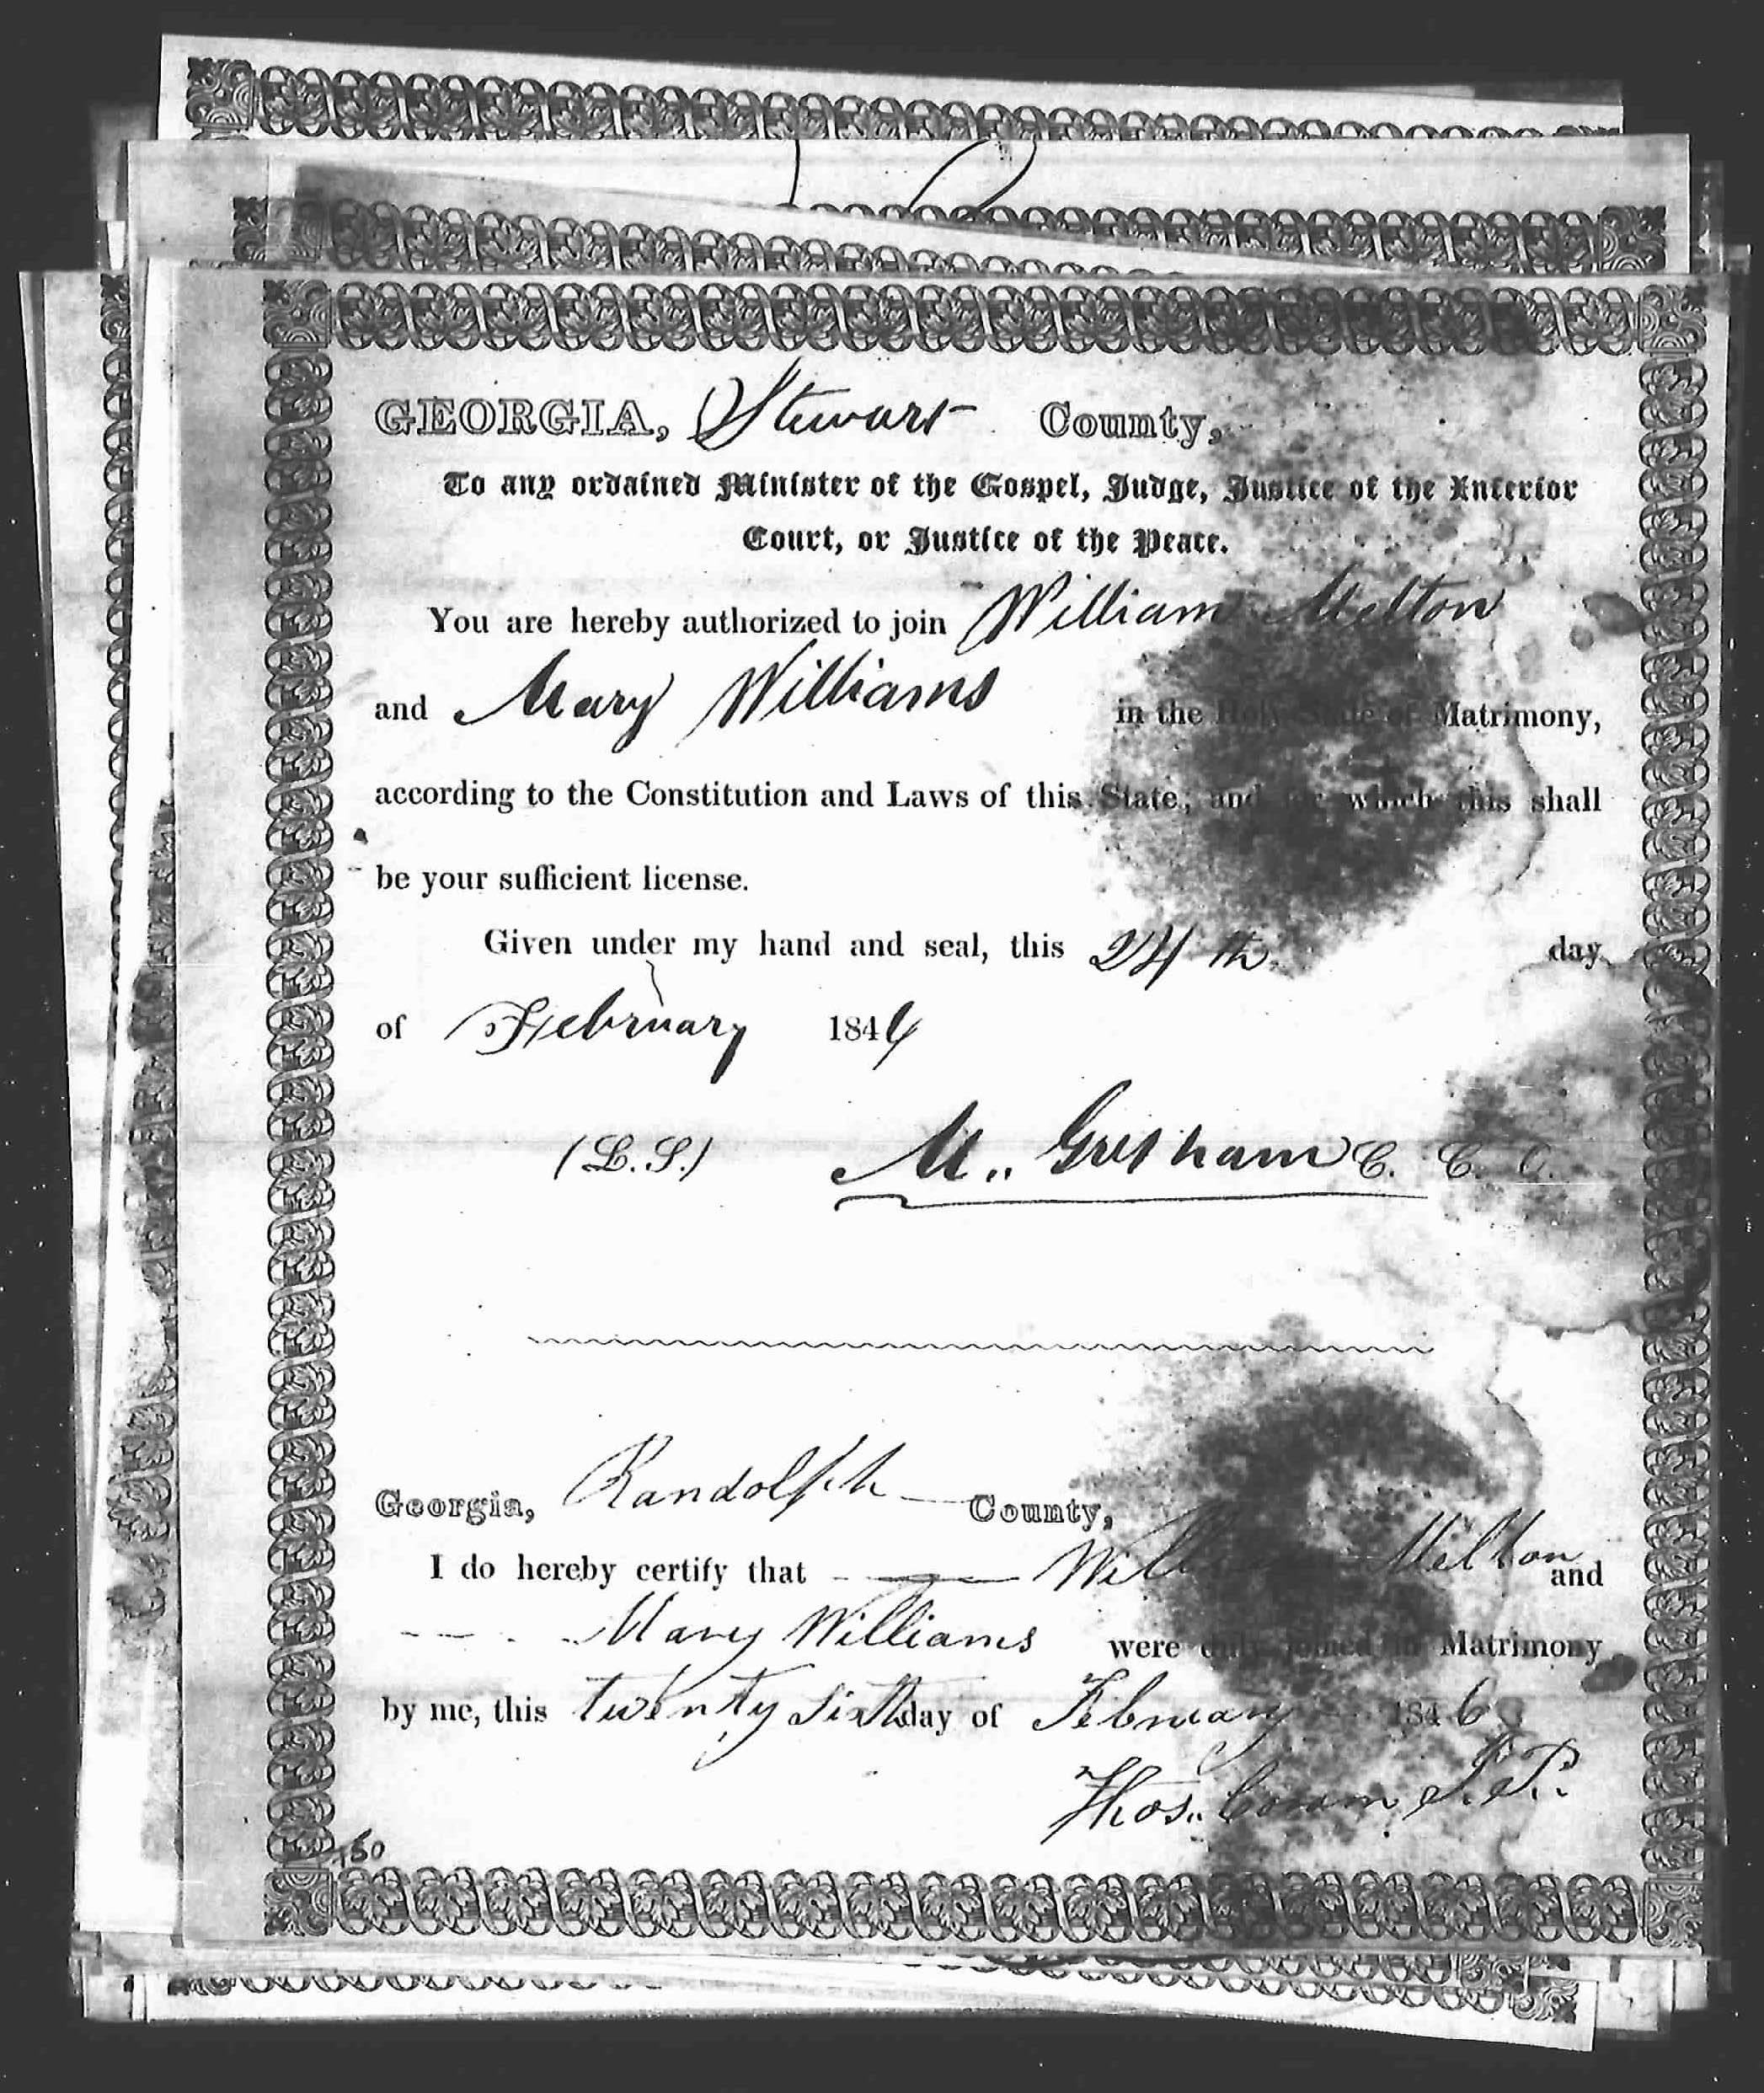 GEORGIA, Stewart County,
To any ordained Minister of the Gospel, Judge, Justice of the Inferior
Court, or Justice of the Peace.
You are hereby authorized to join William Melton
and Mary Williams in the Holy State of Matrimony,
according to the Constitution and Laws of this State, and for which this shall
be your sufficient license.
Given under my hand and seal, this 24th day
of February 1846
(L.S.) M. Gresham C. C. O.
Georgia, Randolph County,
I do hereby certify that William Melton and
Mary Williams were duly joined in Matrimony
by me, this twenty sixth day of February 1846
Thos. J.P.
150